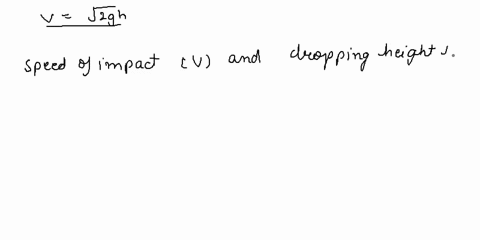 v = √2gh
speed of impact (V) and dropping height